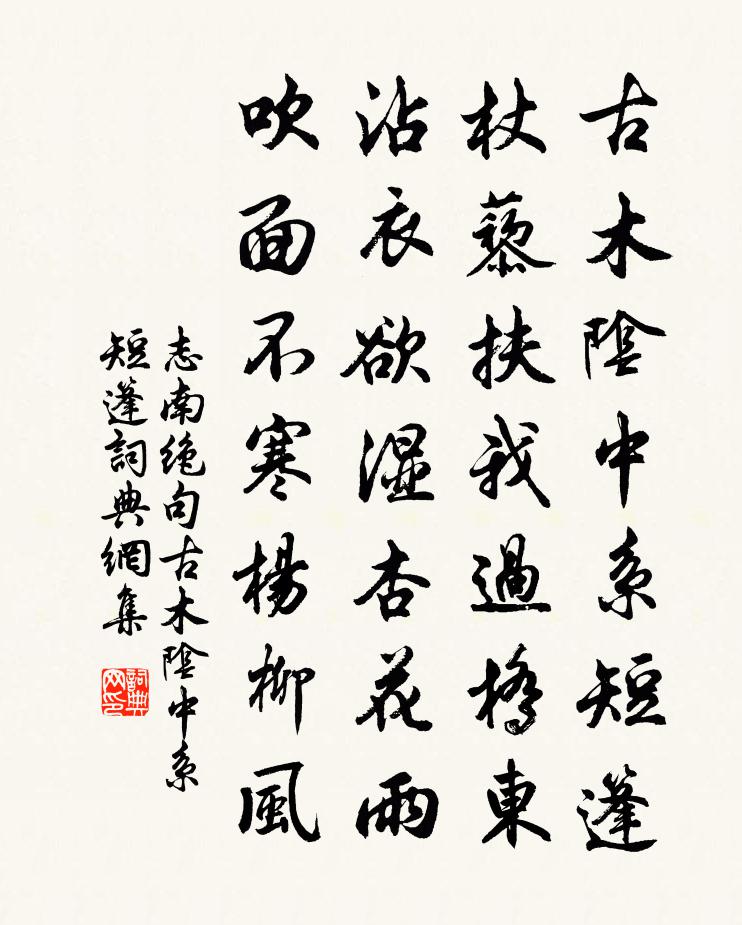 古木陰中系短篷
杖藜扶我過橋東
沾衣欲濕杏花雨
吹面不寒楊柳風
志南絶句古木陰中系
短篷詞典網集
詞典
网印